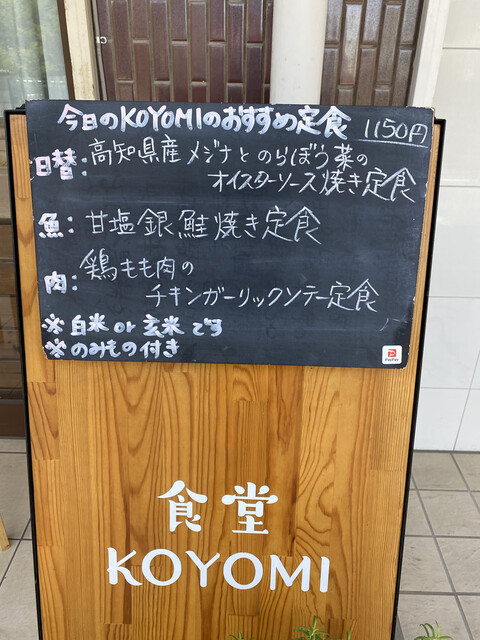 今日のKOYOMIのおすすめ定食 1150円
日替: 高知県産メジナとのらぼう菜の
オイスターソース焼き定食
魚: 甘塩銀鮭焼き定食
肉: 鶏もも肉の
チキンガーリックソテー定食
※白米or玄米です
※のみもの付き
PayPay
食堂
KOYOMI